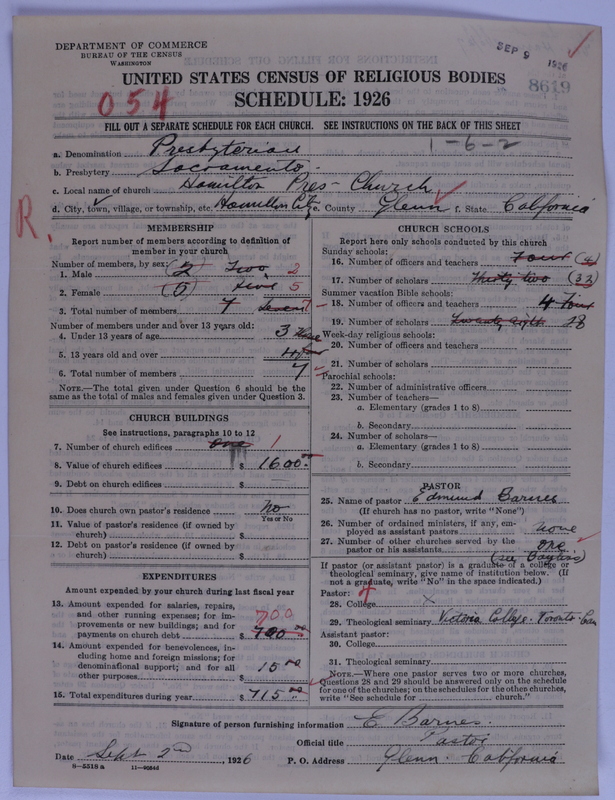 DEPARTMENT OF COMMERCE
BUREAU OF THE CENSUS
WASHINGTON
SEP 9 1926
8619
UNITED STATES CENSUS OF RELIGIOUS BODIES
054
SCHEDULE: 1926
FILL OUT A SEPARATE SCHEDULE FOR EACH CHURCH. SEE INSTRUCTIONS ON THE BACK OF THIS SHEET
1-6-2
a. Denomination Presbyterian
b. Presbytery Sacramento
c. Local name of church Hamilton Pres- Church
d. City, town, village, or township, etc. Hamilton City e. County Glenn f. State California
R.
MEMBERSHIP
Report number of members according to definition of member in your church
Number of members, by sex:
1. Male (2) Two 2
2. Female (5) five 5
3. Total number of members 7 Seven 7
Number of members under and over 13 years old:
4. Under 13 years of age 3 Three
5. 13 years old and over 4
6. Total number of members 7
NOTE.—The total given under Question 6 should be the same as the total of males and females given under Question 3.
CHURCH BUILDINGS
See instructions, paragraphs 10 to 12
7. Number of church edifices One 1
8. Value of church edifices $ 1600.00
9. Debt on church edifices $
10. Does church own pastor's residence? No
Yes or No
11. Value of pastor's residence (if owned by church) $
12. Debt on pastor's residence (if owned by church) $
EXPENDITURES
Amount expended by your church during last fiscal year
13. Amount expended for salaries, repairs, and other running expenses; for improvements or new buildings; and for payments on church debt $ 700 700.00
14. Amount expended for benevolences, including home and foreign missions; for denominational support; and for all other purposes $ 15.00
15. Total expenditures during year $ 715.00
CHURCH SCHOOLS
Report here only schools conducted by this church
Sunday schools:
16. Number of officers and teachers Four (4)
17. Number of scholars Thirty two (32)
Summer vacation Bible schools:
18. Number of officers and teachers 4 Four
19. Number of scholars Twenty eight 28
Week-day religious schools:
20. Number of officers and teachers
21. Number of scholars
Parochial schools:
22. Number of administrative officers
23. Number of teachers—
a. Elementary (grades 1 to 8)
b. Secondary
24. Number of scholars—
a. Elementary (grades 1 to 8)
b. Secondary
PASTOR
25. Name of pastor Edmund Barnes
(If church has no pastor, write "None")
26. Number of ordained ministers, if any, employed as assistant pastors none
27. Number of other churches served by the pastor or his assistants one
(see Bayliss)
If pastor (or assistant pastor) is a graduate of a college or theological seminary, give name of institution below. (If not a graduate, write "No" in the space indicated.)
Pastor:
28. College X
29. Theological seminary Victoria College. Toronto Can
Assistant pastor:
30. College
31. Theological seminary
NOTE.—Where one pastor serves two or more churches, Questions 28 and 29 should be answered only on the schedule for one of the churches; on the schedules for the other churches, write "See schedule for church."
Signature of person furnishing information E Barnes.
Official title Pastor
Date Sept 2nd, 1926 P. O. Address Glenn. California
8—5518 a 11—9084d